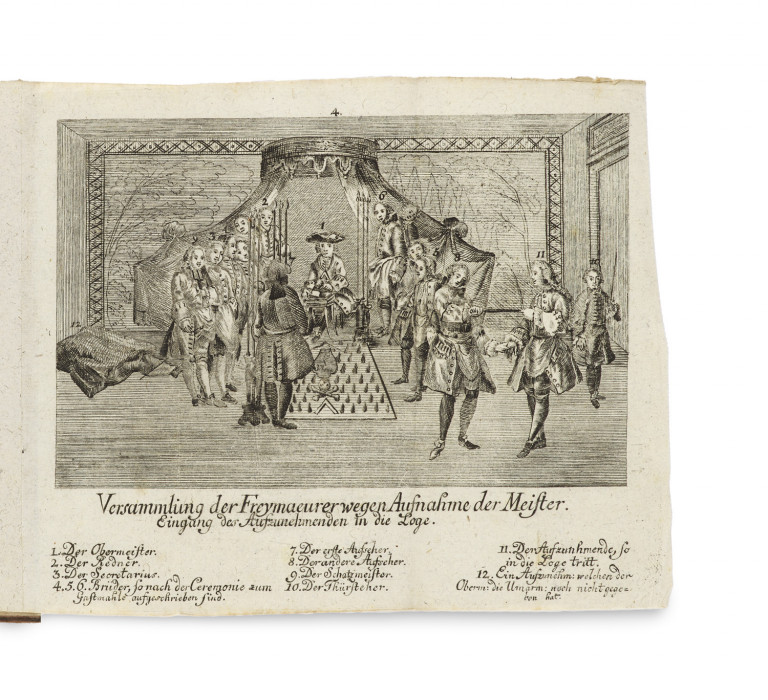 4.
Versammlung der Freymaeurer wegen Aufnahme der Meister.
Eingang des Aufzunehmenden in die Loge.
1. Der Obermeister.
2. Der Redner.
3. Der Secretarius.
4. 5. 6. Brüder, so nach der Ceremonie zum
Gastmahle aufgeschrieben sind.
7. Der erste Aufseher.
8. Der andere Aufseher.
9. Der Schatzmeister.
10. Der Thürsteher.
11. Der Aufzunehmende, so
in die Loge tritt.
12. Ein Aufznehm: welchen der
Oberm: die Umarm: noch nicht gege-
ben hat.
2
1
6
11
10
12